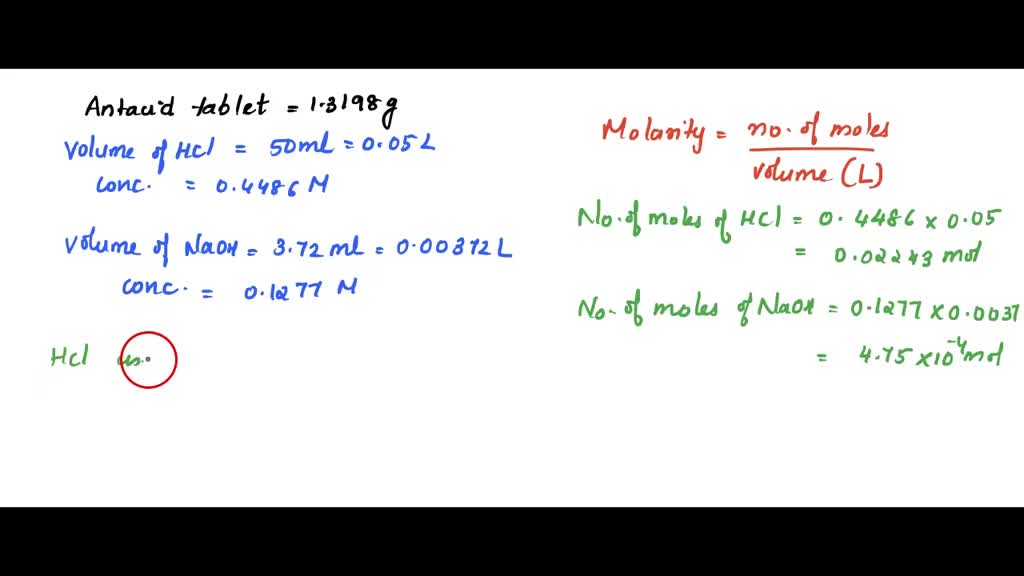 Antacid tablet = 1.3198g
Volume of HCl = 50ml = 0.05 L
conc. = 0.4486 M
Volume of NaOH = 3.72 ml = 0.00372 L
conc. = 0.1277 M
HCl us
Molarity = no. of moles
volume (L)
No. of moles of HCl = 0.4486 x 0.05
= 0.02243 mol
No. of moles of NaOH = 0.1277 x 0.0037
= 4.75 x 10⁻⁴ mol